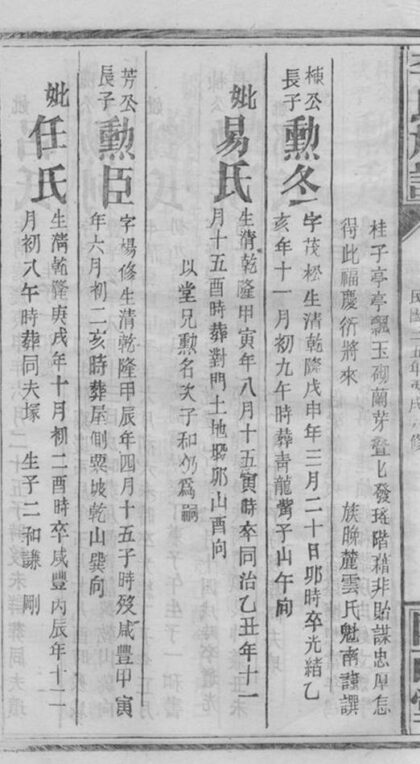 桂子亭亭飄玉砌蘭芽發瑤階藉非貽謀忠厚怎
得此福慶衍將來
族晚麓雲氏魁南謹譔
棟公長子
勳冬
字茂松生清乾隆戊申年三月二十日卯時卒光緒乙
亥年十一月初九午時葬青龍嘴子山午向
妣易氏
生清乾隆甲寅年八月十五寅時卒同治乙丑年十一
月十五酉時葬對門土地卯山酉向
以堂兄勳名次子和仍為嗣
芳公長子
勳臣
字楊修生清乾隆甲辰年四月十五子時歿咸豐甲寅
年六月初二亥時葬屋側粟坡乾山巽向
妣任氏
生清乾隆庚戌年十月初二酉時卒咸豐丙辰年十二
月初八午時葬同夫塚 生子二和謙 剛